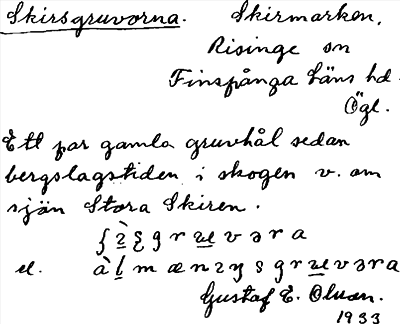 Skirsgruvorna. Skirmarken,
Risinge sn
Finspånga läns hd.
Ögl.
Ett par gamla gruvhål sedan
bergslagstiden i skogen v. om
sjön Stora Skiren.
el.
Gustaf E. Olsson.
1933